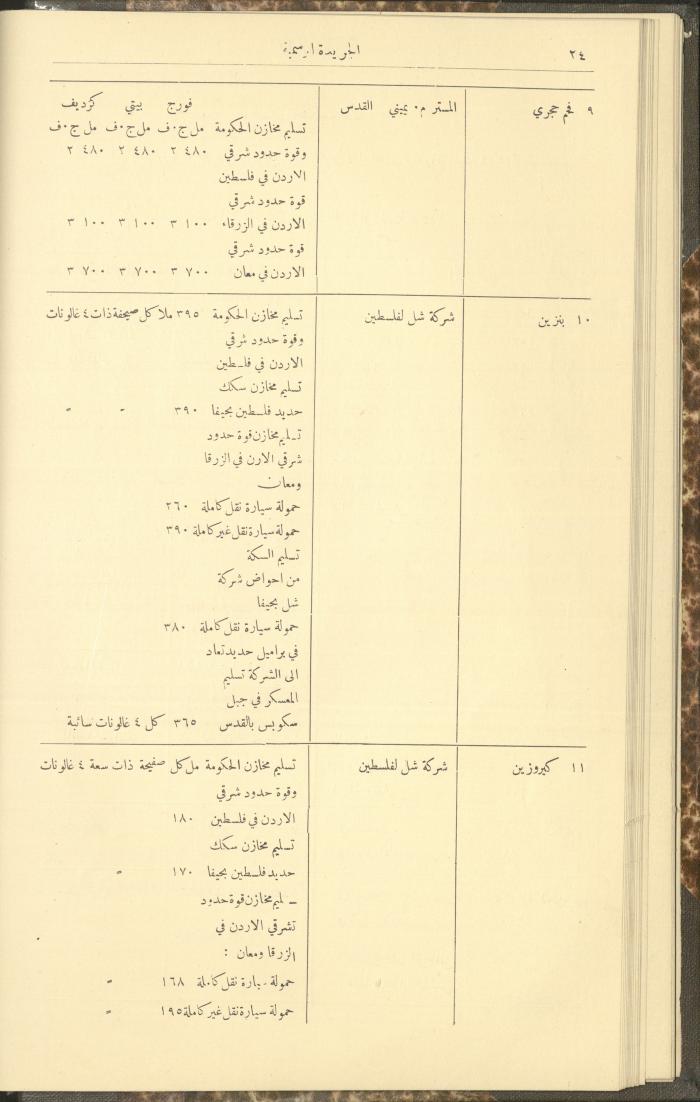 ٢٤
الجريدة الرسمية
٩ فحم حجري
المستر م. يميني القدس
فورج بيتي كرديف
تسليم مخازن الحكومة مل ج.ف مل ج.ف مل ج.ف
وقوة حدود شرقي ٤٨٠ ٢ ٤٨٠ ٢ ٤٨٠ ٢
الاردن في فلسطين
قوة حدود شرقي
الاردن في الزرقاء ١٠٠ ٣ ١٠٠ ٣ ١٠٠ ٣
قوة حدود شرقي
الاردن في معان ٧٠٠ ٣ ٧٠٠ ٣ ٧٠٠ ٣
١٠ بنزين
شركة شل لفلسطين
تسليم مخازن الحكومة ٣٩٥ ملا كل صيحفة ذات ٤ غالونات
وقوة حدود شرقي
الاردن في فلسطين
تسليم مخازن سكك
حديد فلسطين بحيفا ٣٩٠ " "
تسليم مخازن قوة حدود
شرقي الارن في الزرقا
ومعان
حمولة سيارة نقل كاملة ٢٦٠
حمولة سيارة نقل غير كاملة ٣٩٠
تسليم السكة
من احواض شركة
شل بحيفا
حمولة سيارة نقل كاملة ٣٨٠
في براميل حديد تعاد
الى الشركة تسليم
المعسكر في جبل
سكوبس بالقدس ٣٦٥ كل ٤ غالونات سائبة
١١ كيروزين
شركة شل لفلسطين
تسليم مخازن الحكومة مل كل صفيحة ذات سعة ٤ غالونات
وقوة حدود شرقي
الاردن في فلسطين ١٨٠
تسليم مخازن سكك
حديد فلسطين بحيفا ١٧٠ "
تسليم مخازن قوة حدود
شرقي الاردن في
الزرقا ومعان :
حمولة سيارة نقل كاملة ١٦٨ "
حمولة سيارة نقل غير كاملة ١٩٥ "